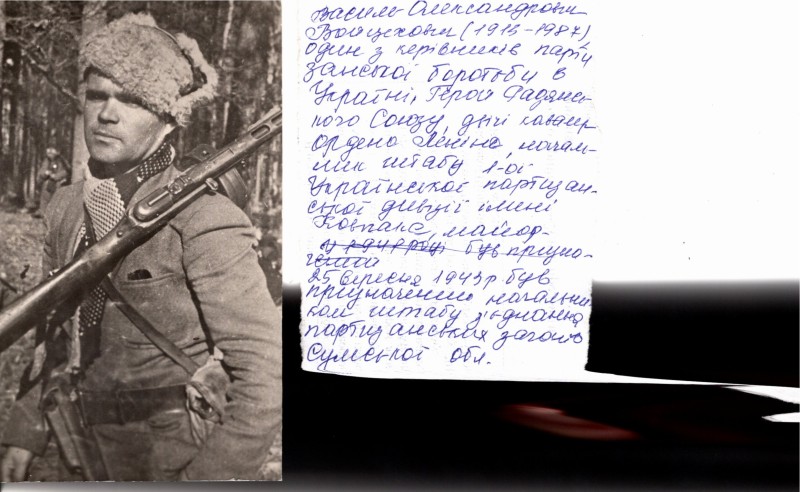 Василь Олександрович
Войцехович (1913-1987)
один з керівників парти
занської боротьби в
Україні, Герой Радянсь-
кого Союзу, двічі кавалер
ордена Леніна, началь-
ник штабу 1-ої
Української партизан-
ської дивізії імені
Ковпака, майор.
був призна-
чений
25 вересня 1943р був
призначений начальни
ком штабу з'єднання
партизанських загонів
Сумської обл.